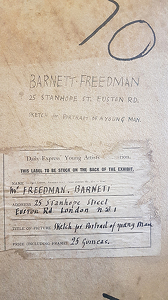 BARNETT FREEDMAN
25 STANHOPE ST. EUSTON RD.
SKETCH FOR PORTRAIT OF A YOUNG MAN
Daily Express Young Artists'
THIS LABEL TO BE STUCK ON THE BACK OF THE EXHIBIT.
NAME Mr FREEDMAN. BARNETT
ADDRESS 25 Stanhope Street
Euston Rd London N.W.1
TITLE OF PICTURE Sketch for Portrait of young Man
PRICE (INCLUDING FRAME) 25 Guineas.